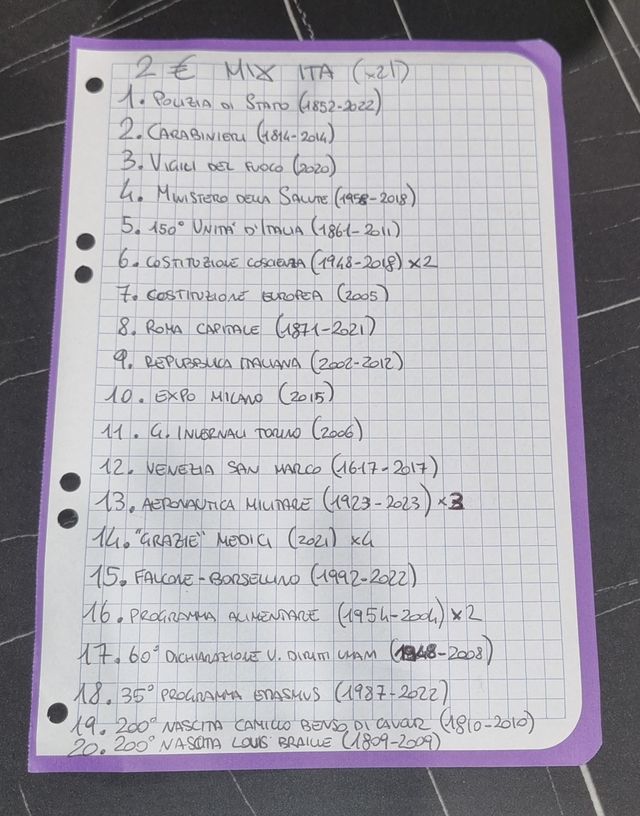 2 € MIX ITA (x21)
1. POLIZIA DI STATO (1852-2022)
2. CARABINIERI (1814-2014)
3. VIGILI DEL FUOCO (2020)
4. MINISTERO DELLA SALUTE (1958-2018)
5. 150° UNITA' D'ITALIA (1861-2011)
6. COSTITUZIONE COSCIENZA (1948-2018) x2
7. COSTITUZIONE EUROPEA (2005)
8. ROMA CAPITALE (1871-2021)
9. REPUBBLICA ITALIANA (2002-2012)
10. EXPO MILANO (2015)
11. G. INVERNALI TORINO (2006)
12. VENEZIA SAN MARCO (1617-2017)
13. AERONAUTICA MILITARE (1923-2023) x3
14. "GRAZIE" MEDICI (2021) x4
15. FALCONE-BORSELLINO (1992-2022)
16. PROGRAMMA ALIMENTARE (1954-2004) x2
17. 60° DICHIARAZIONE U. DIRITTI UMANI (1948-2008)
18. 35° PROGRAMMA ERASMUS (1987-2022)
19. 200° NASCITA CAMILLO BENSO DI CAVOUR (1810-2010)
20. 200° NASCITA LOUIS BRAILLE (1809-2009)